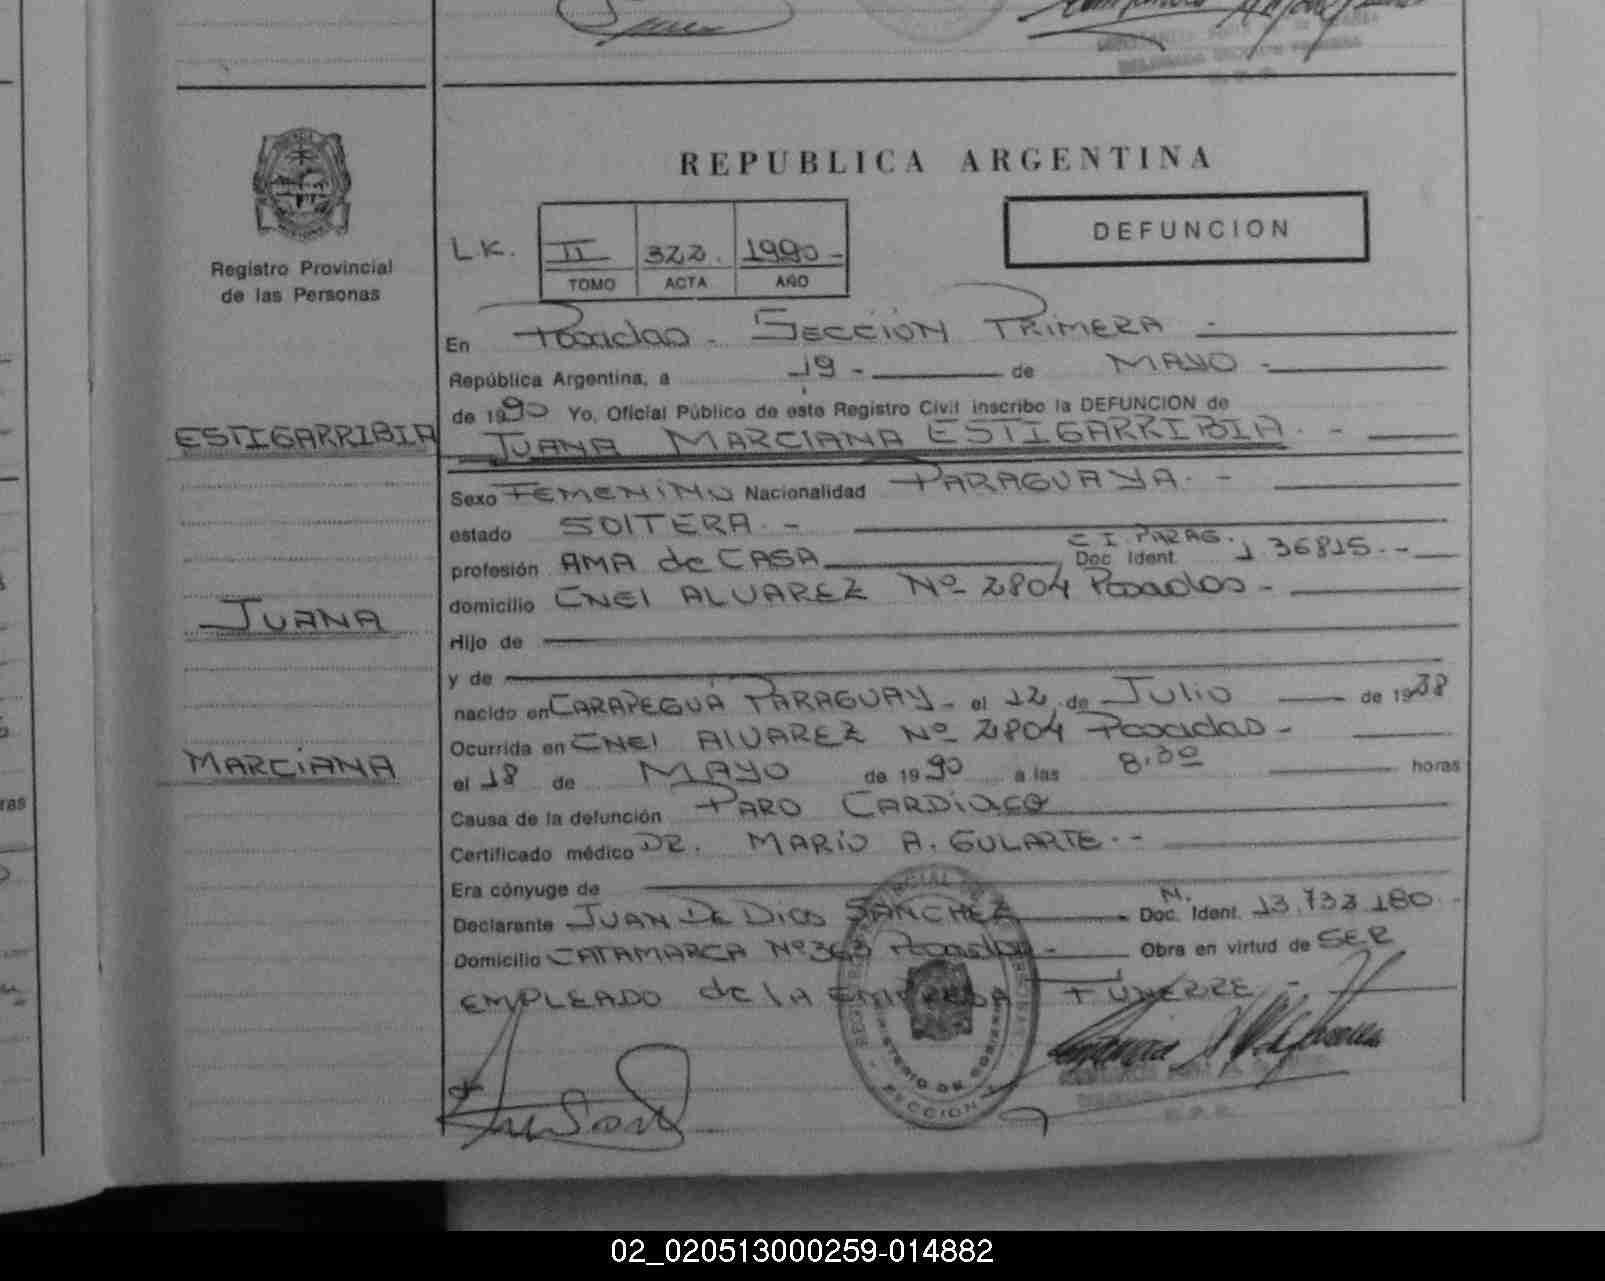 REPUBLICA ARGENTINA
Registro Provincial
de las Personas
L.K. II 322. 1990 -
TOMO ACTA AÑO
DEFUNCION
En Posadas - SECCIÓN PRIMERA -
República Argentina, a 19 - de MAYO -
de 1990 Yo, Oficial Público de este Registro Civil inscribo la DEFUNCION de
ESTIGARRIBIA
JUANA MARCIANA ESTIGARRIBIA. -
Sexo FEMENINO Nacionalidad PARAGUAYA. -
estado SOlTERA. -
C I. PARAG.
profesión AMA de CASA Doc Ident. 1 36815. -
domicilio CNEl ALVAREZ Nº 2804 Posadas -
JUANA
Hijo de
y de
nacido en CARAPEGUÁ PARAGUAY - el 12 de Julio de 1938
Ocurrida en CNEl AlVAREZ Nº 2804 Posadas -
MARCIANA
el 18 de MAYO de 1990 a las 8.30 horas
Causa de la defunción PARO CARDÍACO
Certificado médico DR. MARIO A. GULARTE. -
Era cónyuge de
N.
Declarante JUAN DE DIOS SANCHEZ Doc. Ident. 13.733.180. -
Domicilio CATAMARCA Nº 363 Posadas - Obra en virtud de SER
EMPLEADO de lA EMPRESA FUNEBRE -
MINISTERIO DE GOBIERNO
SECCION 1
02_020513000259-014882